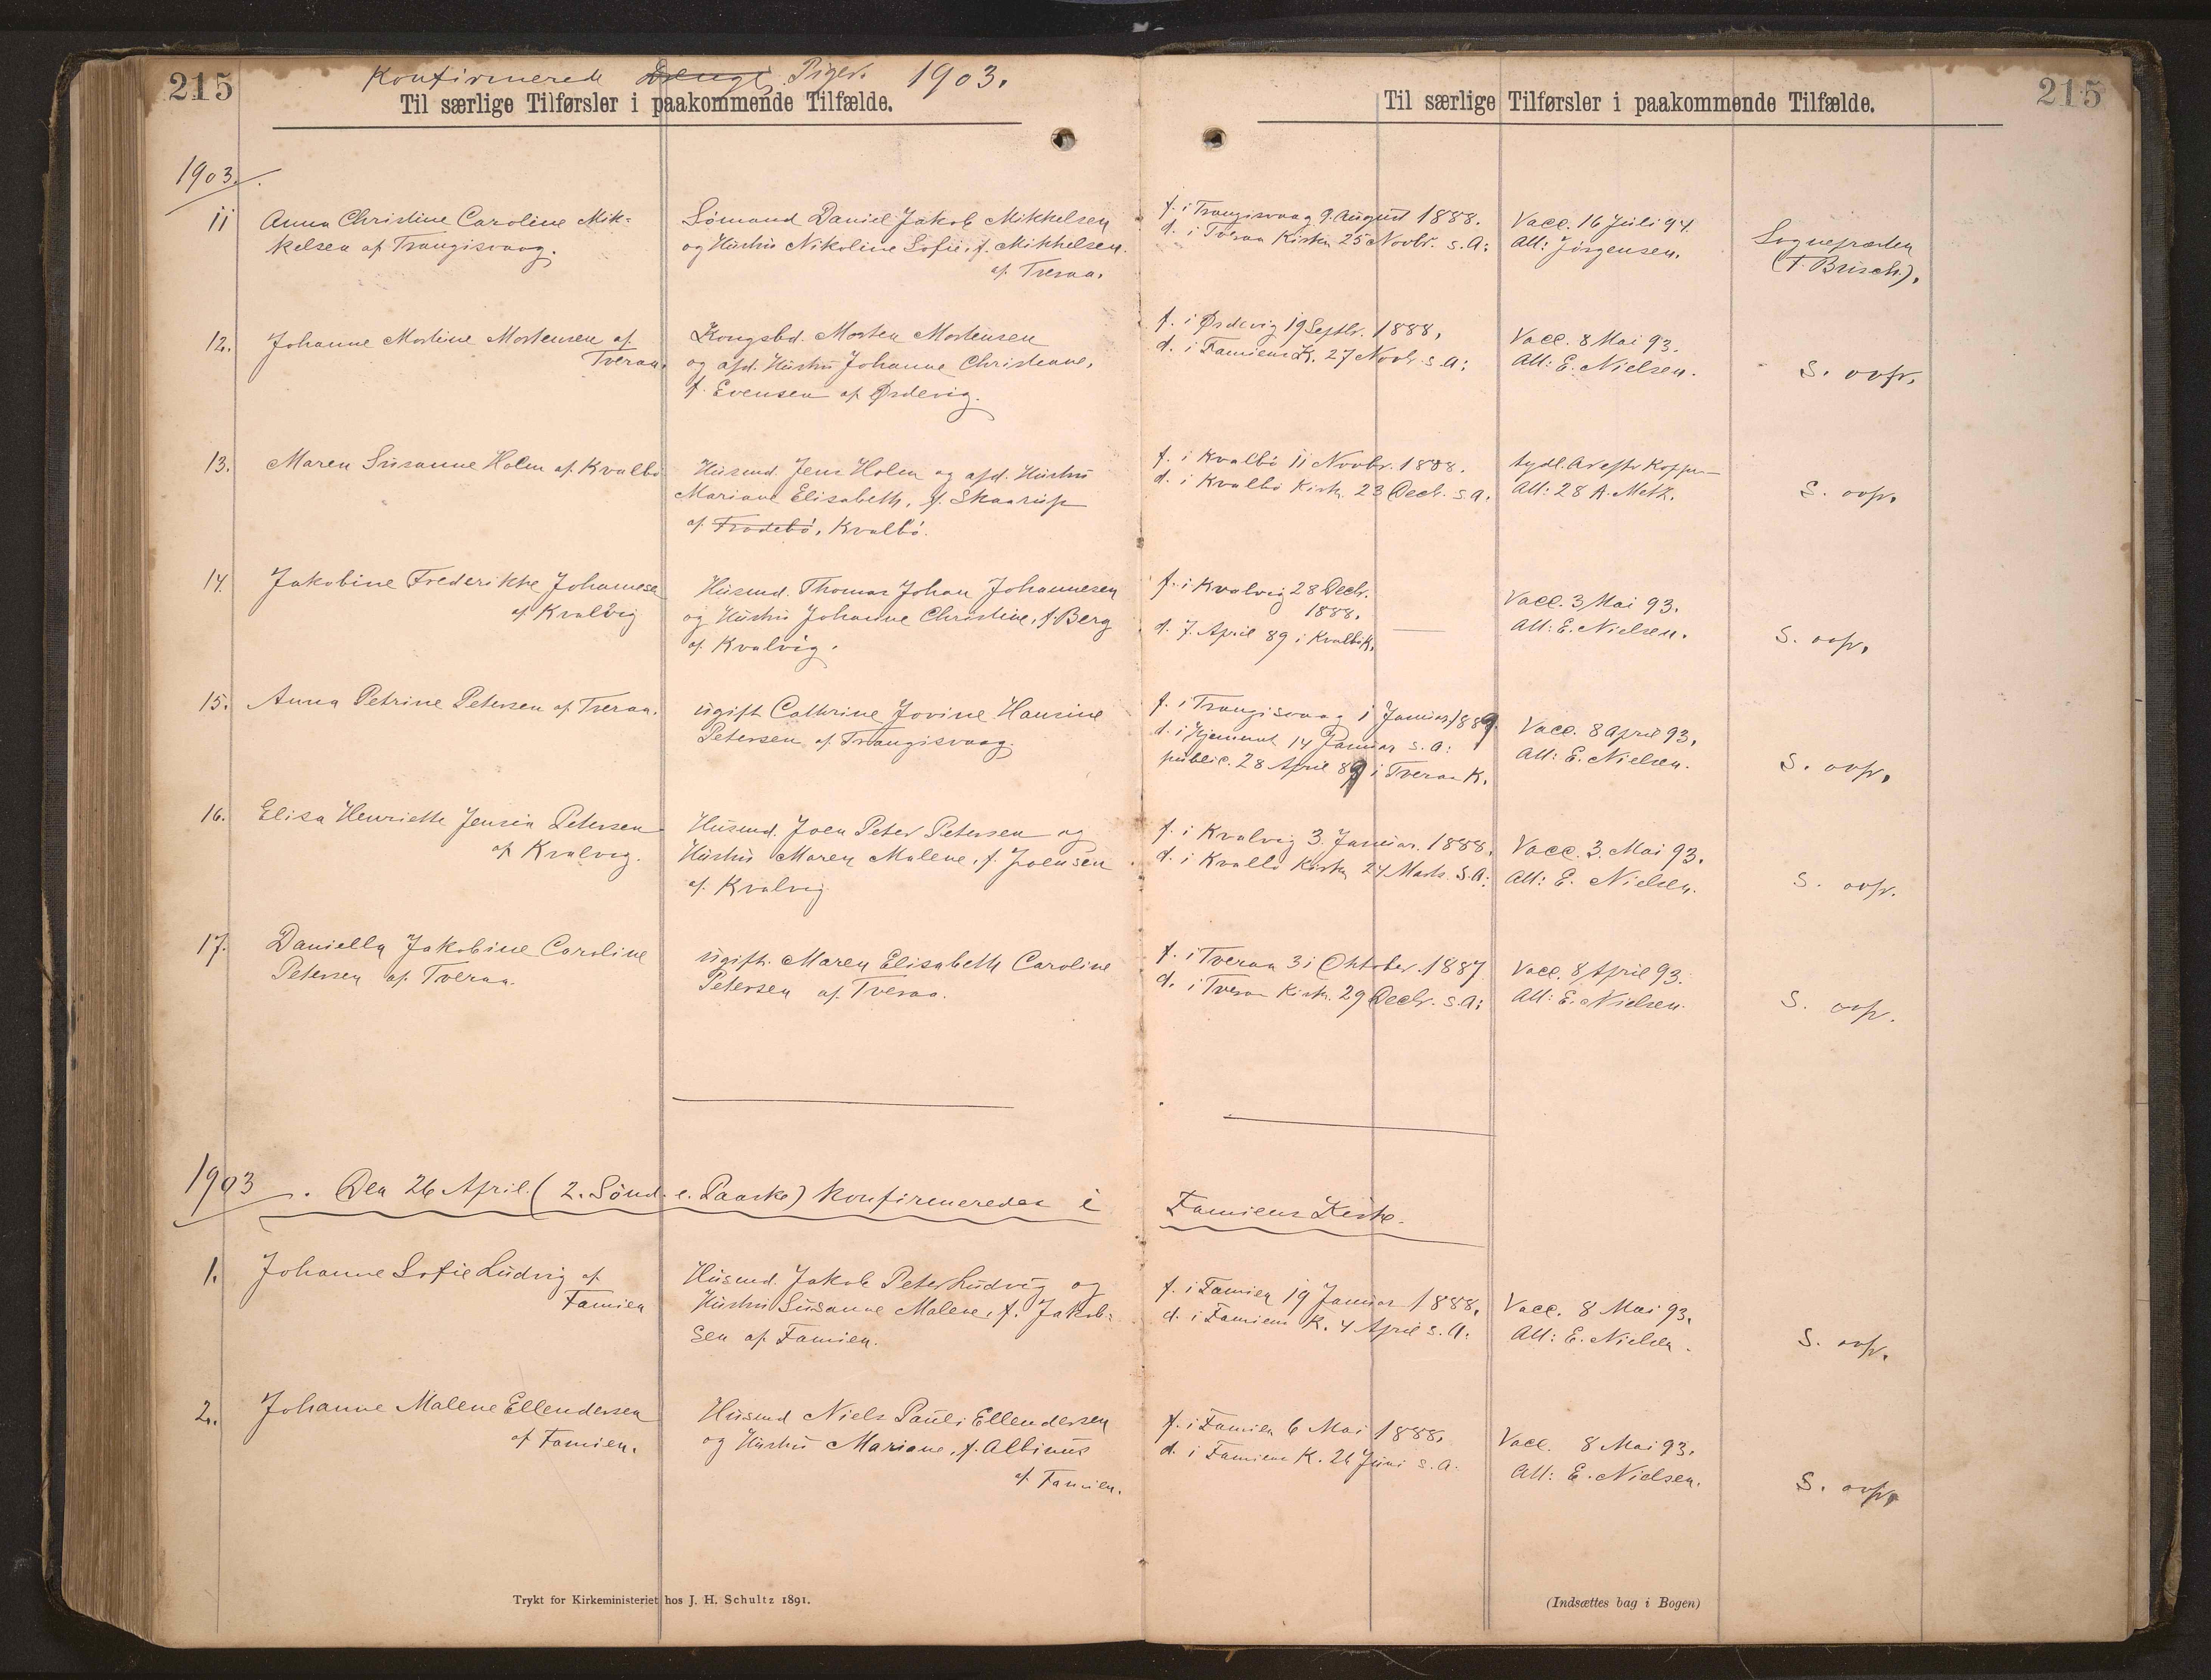 215
Konfirmerede Drenge Piger. 1903.
Til særlige Tilførsler i paakommende Tilfælde.
Til særlige Tilførsler i paakommende Tilfælde.
215
1903.
11
Anna Christine Caroline Mik-
kelsen af Trangisvaag.
Sömand Daniel Jakob Mikkelsen
og Hustru Nikoline Sofie, f. Mikkelsen
af Tveraa.
f. i Trangisvaag 9. August 1888.
d. i Tveraa Kirke 25 Novbr. s. A:
Vacc. 16 Juli 94.
Att: Jörgensen.
Sognepræsten
(F. Brisch).
12.
Johanne Mortine Mortensen af
Tveraa.
Kongsbd. Morten Mortensen
og afd. Hustru Johanne Christiane,
f. Evensen af Ørdevig.
f. i Ørdevig 19 Septbr. 1888.
d. i Famiens K. 27 Novbr. s. A:
Vacc. 8 Mai 93.
Att: E. Nielsen.
S. ovfr.
13.
Maren Susanne Holm af Kvalbö
Husmd. Jens Holm og afd. Hustru
Mariane Elisabeth, f. Skaarup
af Frodebö, Kvalbö.
f. i Kvalbö 11 Novbr. 1888.
d. i Kvalbö Kirke 23 Decb. s. A.
tydl. Ar efter Kopper
Att: 28 A. Metz.
S. ovfr.
14.
Jakobine Frederikke Johannese
af Kvalvig
Husmd. Thomas Johan Johannesen
og Hustru Johanne Christine, f. Berg
af Kvalvig.
f. i Kvalvig 28 Decbr.
1888.
d. 7. April 89 i Kvalbö K.
Vacc. 3 Mai 93.
Att: E. Nielsen.
S. ovfr.
15.
Anna Petrine Petersen af Tveraa.
ugift Cathrine Jovine Hansine
Petersen af Trangisvaag.
f. i Trangisvaag 1 Januar 1889
d. i Hjemmet 14 Januar s. A:
public. 28 April 89 i Tveraa K.
Vacc. 8 April 93.
Att: E. Nielsen.
S. ovfr.
16.
Elisa Henriette Jensia Petersen
af Kvalvig.
Husmd. Joen Peter Petersen og
Hustru Maren Malene, f. Joensen
af Kvalvig
f. i Kvalvig 3. Januar. 1888.
d. i Kvalbö Kirke 24 Marts. S. A:
Vacc. 3. Mai 93.
Att: E. Nielsen.
S. ovfr.
17.
Daniella Jakobine Caroline
Petersen af Tveraa.
ugift. Maren Elisabeth Caroline
Petersen af Tveraa.
f. i Tveraa 31 Oktober. 1887
d. i Tveraa Kirke. 29 Decbr. s. A:
Vacc. 8 April 93.
Att: E. Nielsen.
S. ovfr.
1903. Den 26 April. (2. Sönd. e. Paaske) konfirmeredes i Famiens Kirke.
1.
Johanne Sofie Ludvig af
Famien
Husmd. Jakob Peter Ludvig og
Hustru Susanne Malene, f. Jakob-
sen af Famien.
f. i Famien 19 Januar 1888.
d. i Famiens K. 4 April s. A.
Vacc. 8 Mai 93.
Att: E. Nielsen.
S. ovfr.
2.
Johanne Malene Ellendersen
af Famien.
Husmd Niels Pauli Ellendersen
og Hustru Mariane, f. Albinus
af Famien.
f. i Famien 6 Mai 1888.
d. i Famiens K. 26 Juni s. A.
Vacc. 8 Mai 93.
Att: E. Nielsen.
S. ovfr.
Trykt for Kirkeministeriet hos J. H. Schultz 1891.
(Indsættes bag i Bogen)